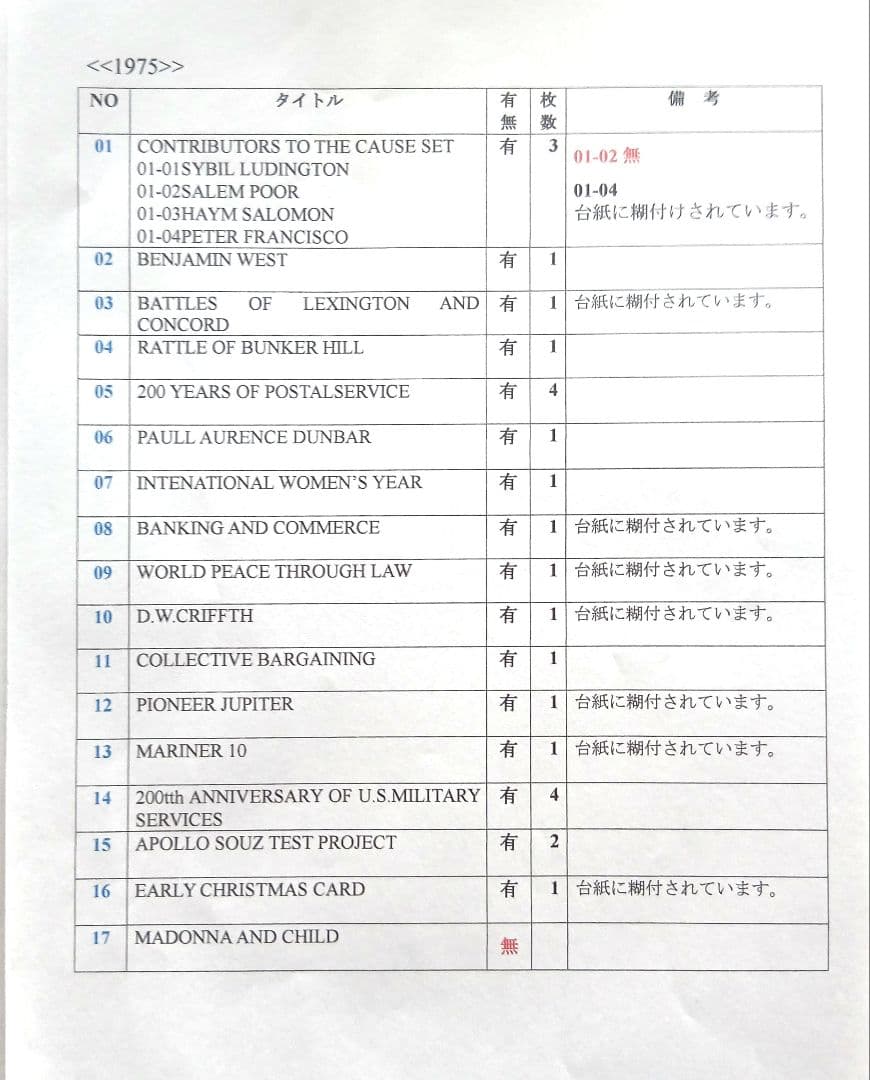 <<1975>>
NO タイトル 有無 枚数 備 考
01 CONTRIBUTORS TO THE CAUSE SET 有 3 01-02 無
01-01SYBIL LUDINGTON
01-02SALEM POOR 01-04
01-03HAYM SALOMON 台紙に糊付けされています。
01-04PETER FRANCISCO
02 BENJAMIN WEST 有 1
03 BATTLES OF LEXINGTON AND 有 1 台紙に糊付されています。
CONCORD
04 RATTLE OF BUNKER HILL 有 1
05 200 YEARS OF POSTALSERVICE 有 4
06 PAULL AURENCE DUNBAR 有 1
07 INTENATIONAL WOMEN'S YEAR 有 1
08 BANKING AND COMMERCE 有 1 台紙に糊付されています。
09 WORLD PEACE THROUGH LAW 有 1 台紙に糊付されています。
10 D.W.CRIFFTH 有 1 台紙に糊付されています。
11 COLLECTIVE BARGAINING 有 1
12 PIONEER JUPITER 有 1 台紙に糊付されています。
13 MARINER 10 有 1 台紙に糊付されています。
14 200tth ANNIVERSARY OF U.S.MILITARY 有 4
SERVICES
15 APOLLO SOUZ TEST PROJECT 有 2
16 EARLY CHRISTMAS CARD 有 1 台紙に糊付されています。
17 MADONNA AND CHILD 無